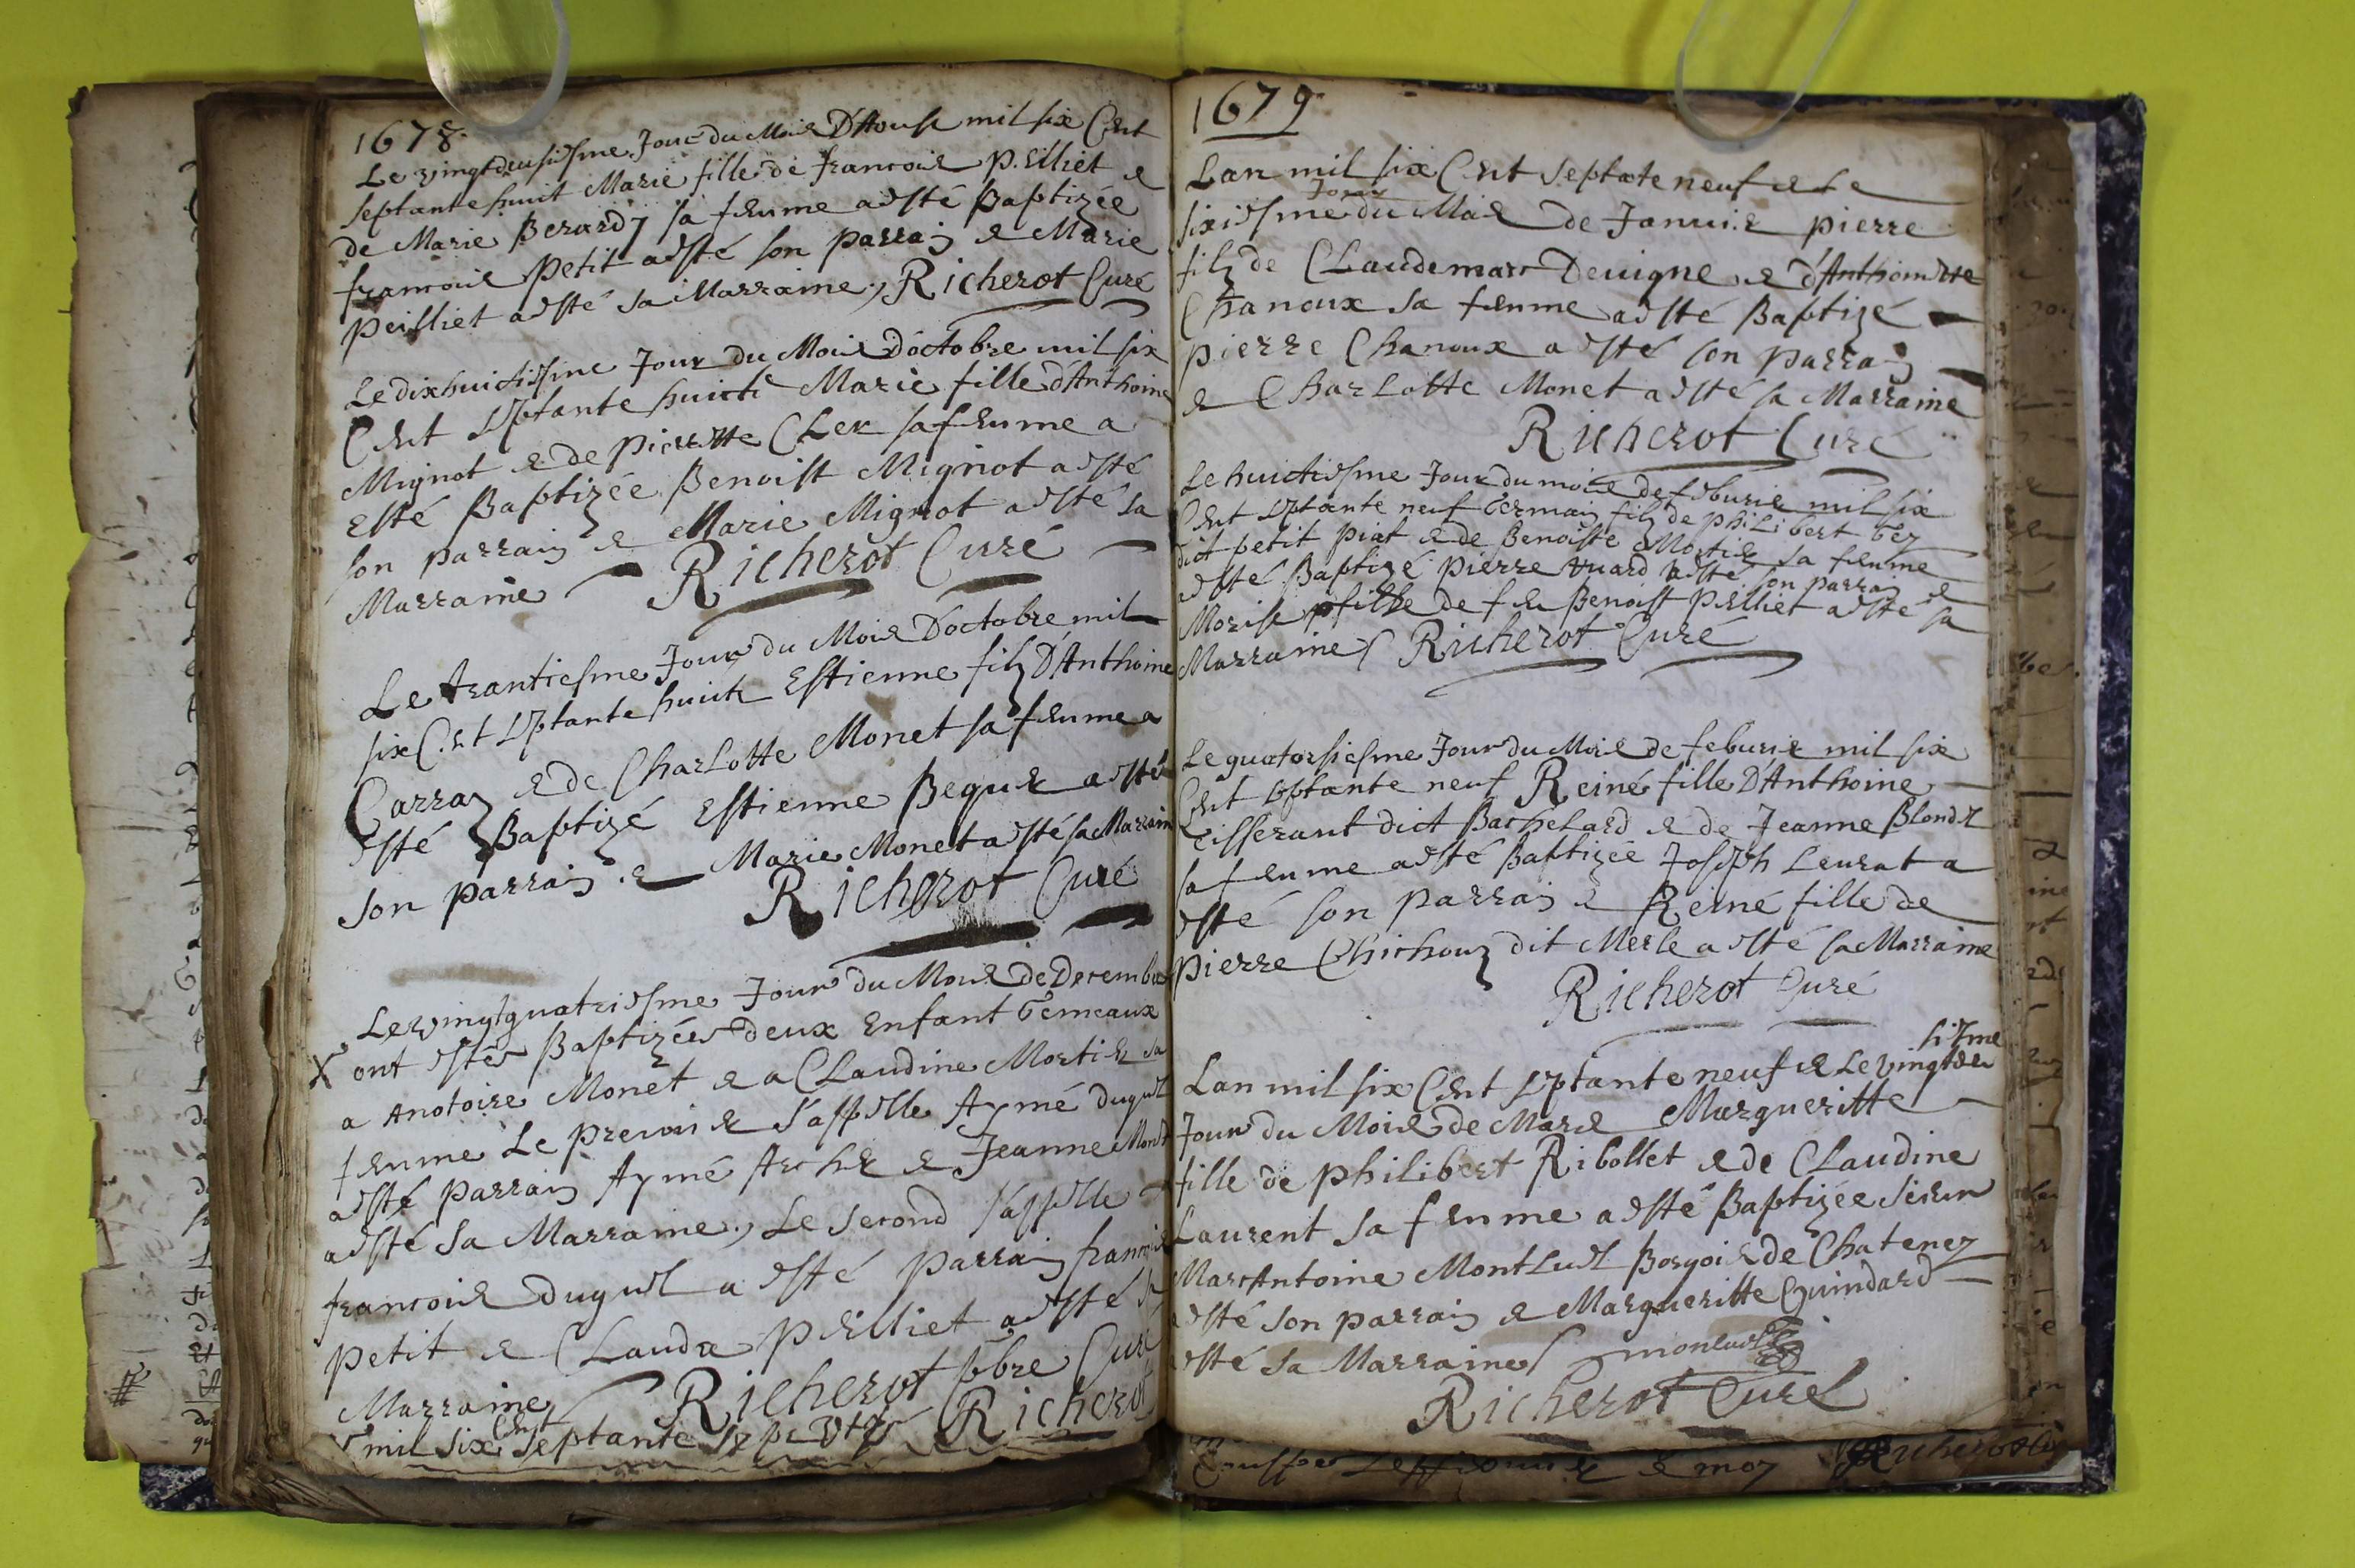 1678.
Le vingtdeusiesme Jour du Mois D'Aoust mil six Cent
septante huit Marie fille de francois peilliet e
de Marie Berardy sa femme a esté Baptizée
francois petit a esté son parrain e Marie
peilliet a esté sa Marraine, Richerot Curé
Le dixhuictiesme Jour du Mois Doctobre mil six
Cent septante huict Marie fille d'Anthoine
Mignot e de pierrette Cler sa femme a
esté Baptizée Benoist Mignot a esté
son parrain e Marie Mignot a esté sa
Marraine Richerot Curé
Le trantiesme Jour du Mois D'octobre mil
six Cent septante huict Estienne filz D'Anthoine
Carraz e de Charlotte Monet sa femme a
esté Baptizé Estienne Beguet a esté
son parrain e Marie Monet a esté sa Marraine
Richerot Curé
Le vingtquatriesme Jour du Mois de Decembre
X ont estés Baptizés deux Enfant Gemeaux
a Anotoire Monet e a Claudine Mortier sa
femme Le premier s'appelle Aymé duquel
a esté parrain Aymé Archer e Jeanne Monet
a esté sa Marraine, Le second s'appelle
francois duquel a esté parrain francois
petit e Claudae peilliet a esté sa
Marraine Richerot pbre Curé
X mil six Cent septante Richerot
1679
Lan mil six Cent septante neuf e Le
sixiesme Jour du Mois de Januier pierre
filz de Claudemarc Deuigne e d'Anthoinette
Chanoux sa femme a esté Baptizé
pierre Chanoux a esté son parrain
e Charlotte Monet a esté sa Marraine
Richerot Curé
Le huictiesme Jour du mois de feburier mil six
Cent septante neuf Germain filz de philibert Gey
dict petit piat e de Benoiste Mortier sa femme
esté Baptizé pierre vuard a esté son parrain e
Morise fille de feu Benoist peilliet a esté sa
Marraine Richerot Curé
Le quatorsiesme Jour du Mois de feburier mil six
Cent septante neuf Reiné fille D'Anthoine
Tisserant dict Bachelard e de Jeanne Blondel
sa femme a esté Baptizée Joseph Leurat a
esté son parrain e Reiné fille de
pierre Chichoux dit Merle a esté sa Marraine
Richerot Curé
Lan mil six Cent septante neuf e Le vingtdeusiesme
Jour du Mois de Mars Margueritte
fille de philibert Ribollet e de Claudine
Laurent sa femme a esté Baptizée sieur
Marc Antoine Montluel Borgois de Chatenez
esté son parrain e Margueritte Guindard
esté sa Marraine monluel
Richerot Curé
e moy